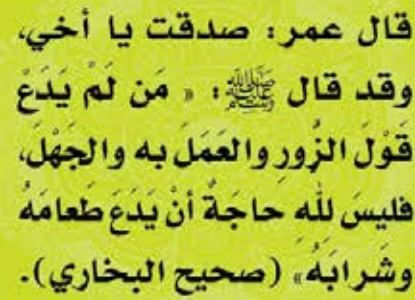 قال عمر: صدقت يا أخي،
وقد قال ﷺ: « مَن لَمْ يَدَعْ
قَوْلَ الزُّورِ والعَمَلَ به والجَهْلَ،
فليسَ لله حاجَةٌ أنْ يَدَعَ طَعامَهُ
وشَرابَهُ» (صحيح البخاري).